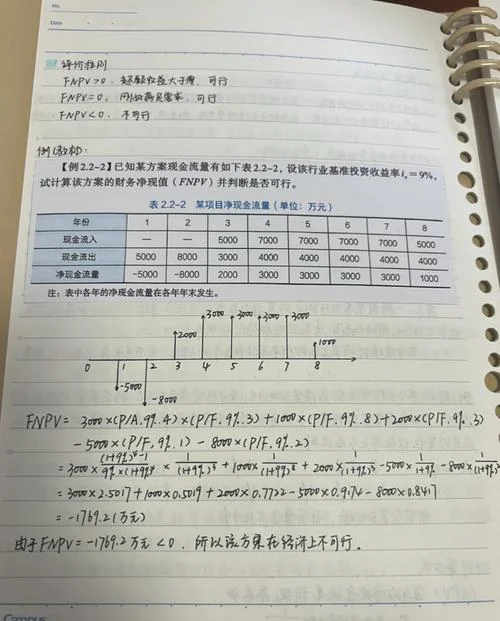 No.
Date
评价准则
FNPV>0，超额收益大于零，可行
FNPV=0，刚好满足要求，可行
FNPV<0，不可行
例(教材):
【例2.2-2】已知某方案现金流量有如下表2.2-2，设该行业基准投资收益率i_c=9%，
试计算该方案的财务净现值（FNPV）并判断是否可行。
表 2.2-2 某项目净现金流量（单位：万元）
年份 1 2 3 4 5 6 7 8
现金流入 — — 5000 7000 7000 7000 7000 5000
现金流出 5000 8000 3000 4000 4000 4000 4000 4000
净现金流量 -5000 -8000 2000 3000 3000 3000 3000 1000
注：表中各年的净现金流量在各年年末发生。
3000 3000 3000 3000
2000
1000
0 1 2 3 4 5 6 7 8
-5000
-8000
FNPV = 3000×(P/A.9%.4)×(P/F.9%.3)+1000×(P/F.9%.8)+2000×(P/F.9%.3)
-5000×(P/F,9%.1)-8000×(P/F.9%.2)
=3000×(1+9%)^4-1/9%×(1+9%)^4×1/(1+9%)^3+1000×1/(1+9%)^8+2000×1/(1+9%)^3-5000×1/1+9%-8000×1/(1+9%)^2
=3000×2.5017+1000×0.5019+2000×0.7722-5000×0.9174-8000×0.8417
=-1769.2(万元)
由于FNPV=-1769.2万元<0，所以该方案在经济上不可行。
Campus